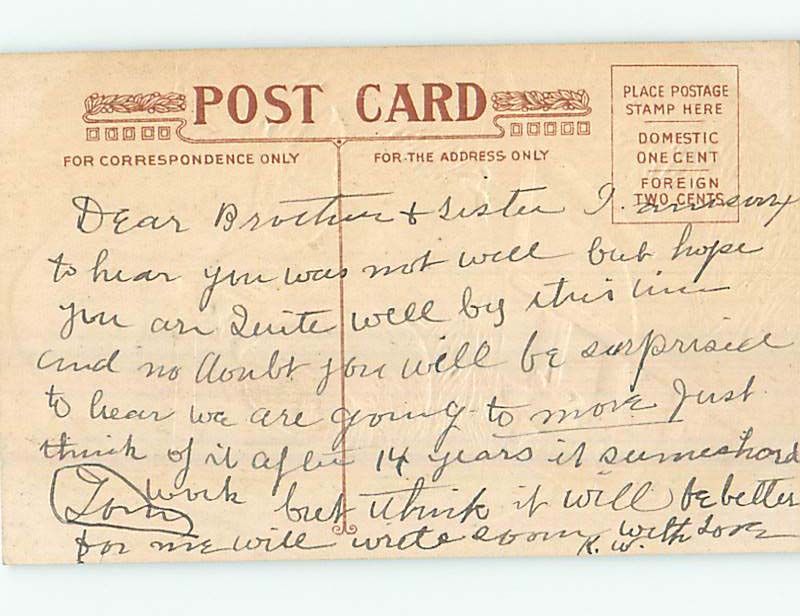 POST CARD
PLACE POSTAGE
STAMP HERE
DOMESTIC
ONE CENT
FOREIGN
TWO CENTS
FOR CORRESPONDENCE ONLY
FOR THE ADDRESS ONLY
Dear Brother & Sister I am sory
to hear you was not well but hope
you are Quite well by this time
and no doubt you will be surprised
to hear we are going to move Just
think of it after 14 years it seemes hard
work but think it will be better
for me will write soon with Love
K. W.